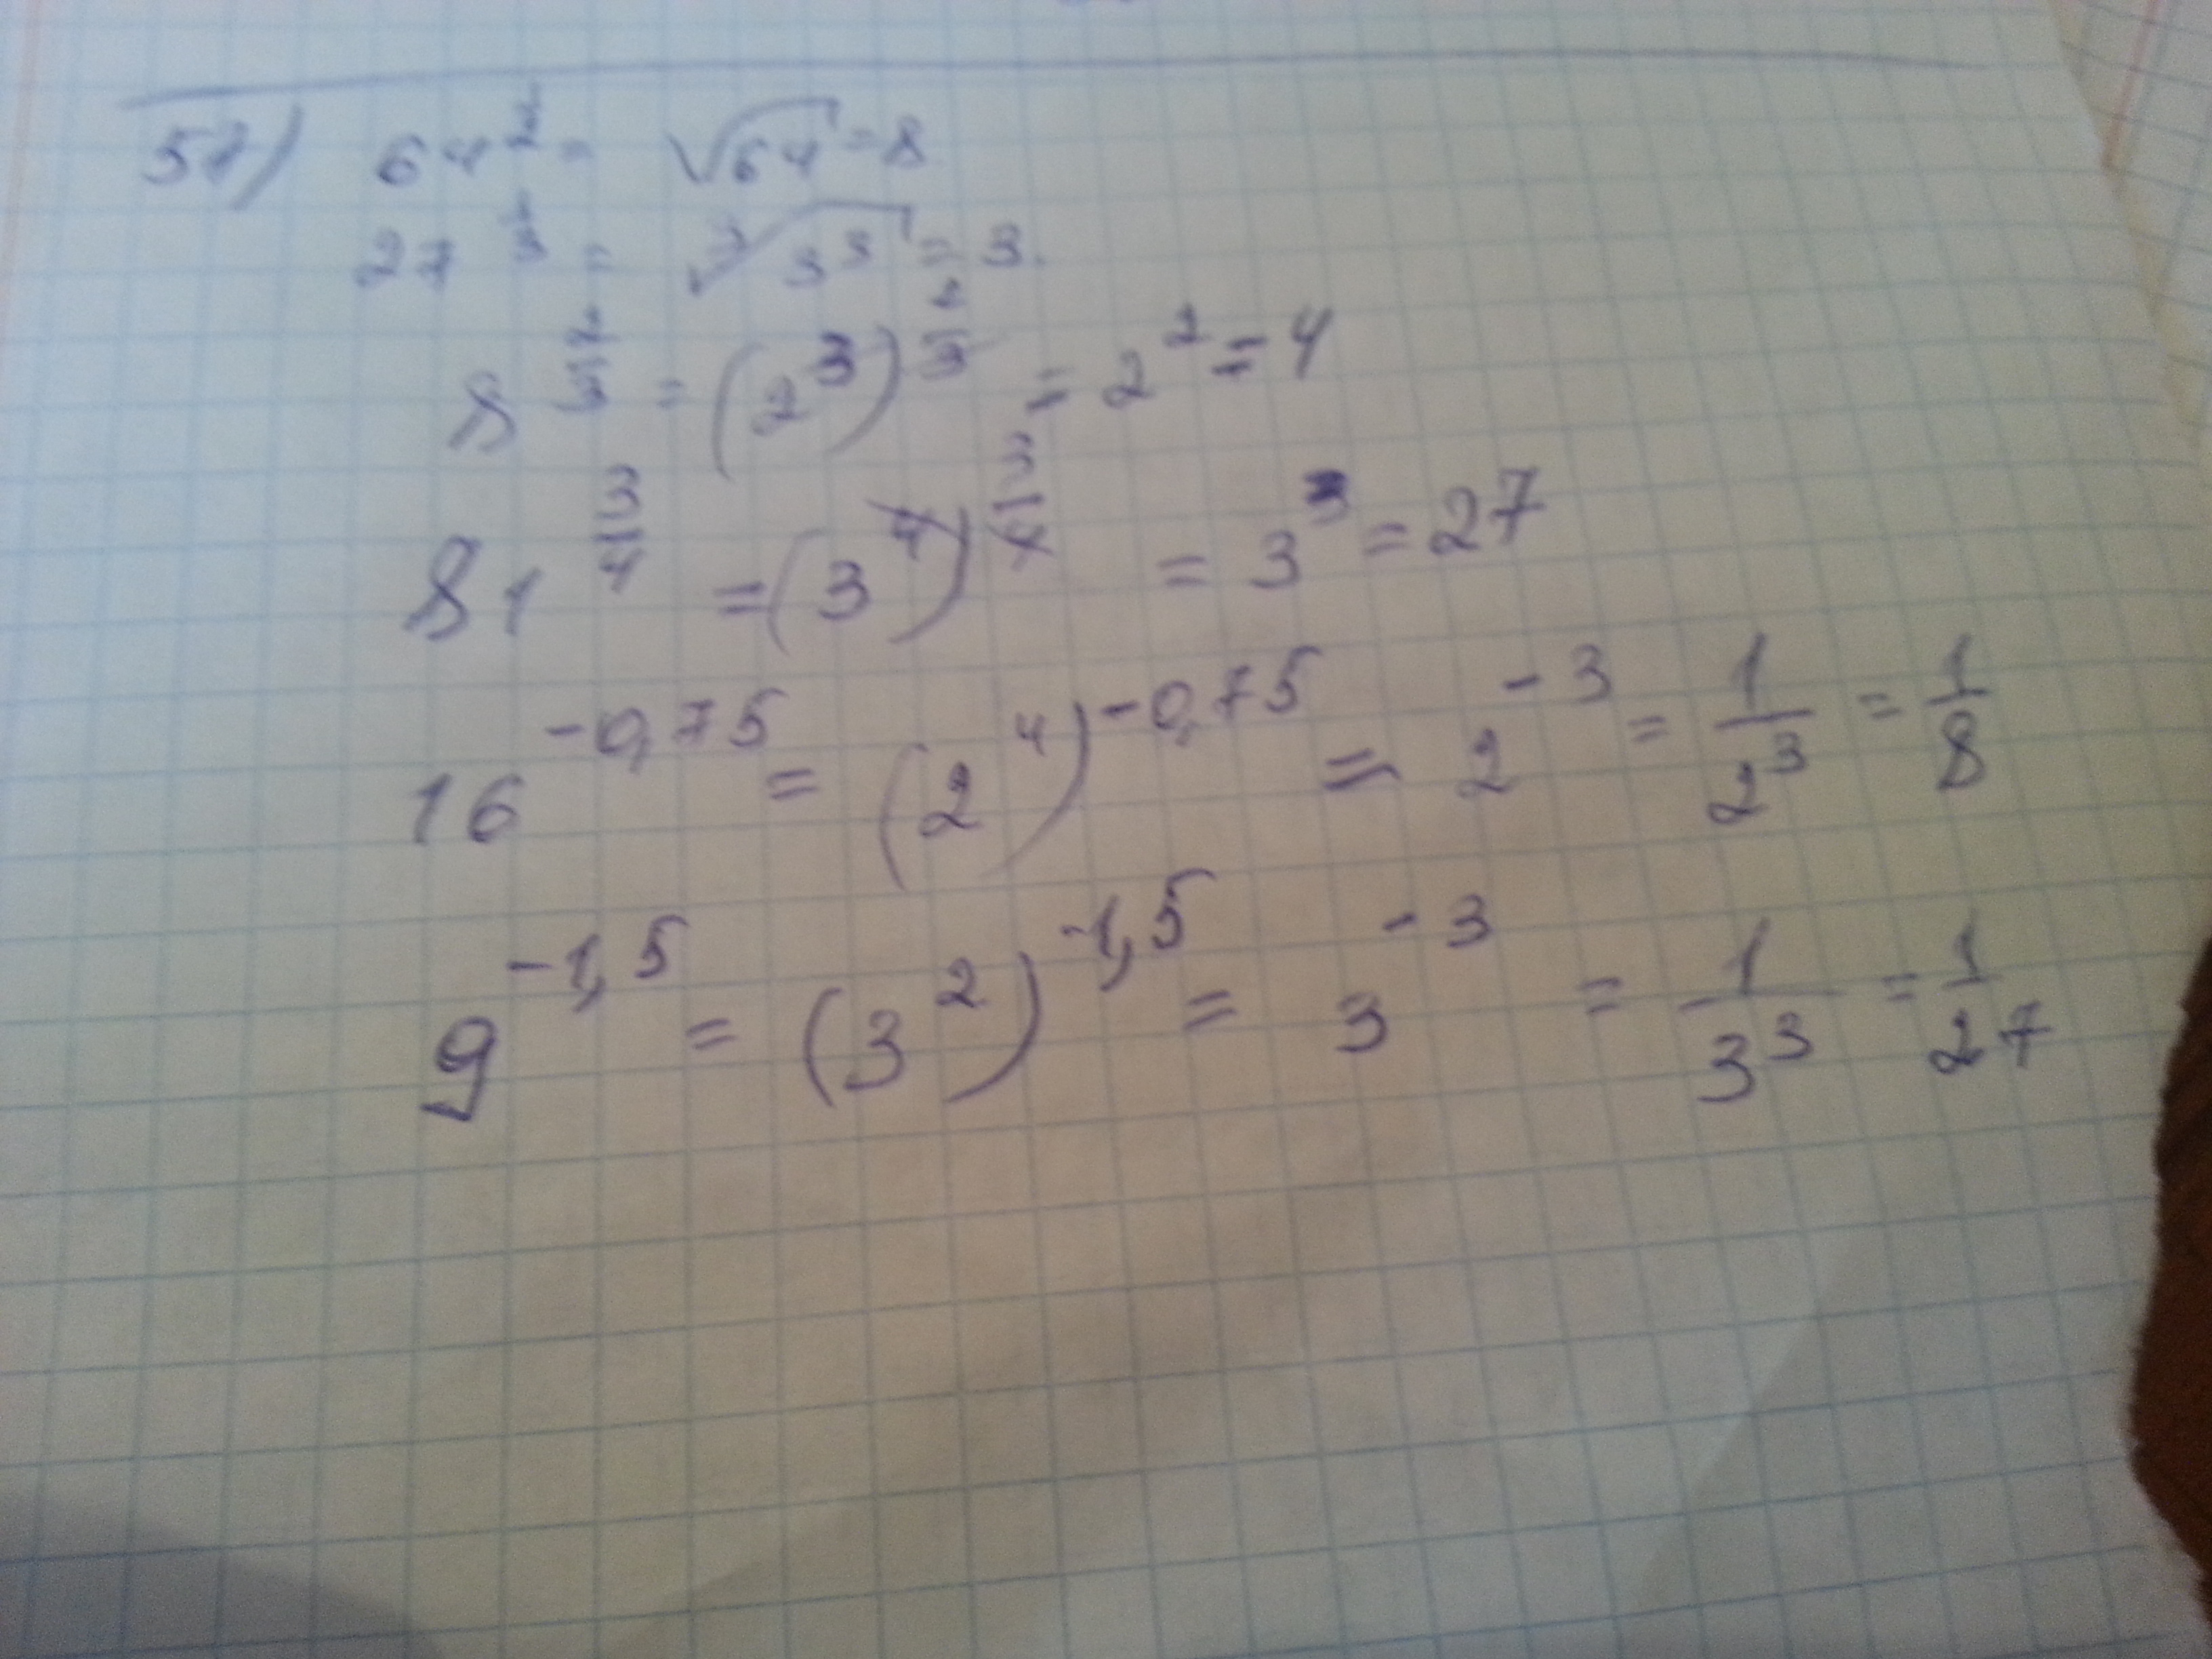 51) 64^{\frac{1}{2}} = \sqrt{64} = 8
27^{\frac{1}{3}} = \sqrt[3]{3^3} = 3.
8^{\frac{2}{3}} = (2^3)^{\frac{2}{3}} = 2^2 = 4
81^{\frac{3}{4}} = (3^4)^{\frac{3}{4}} = 3^3 = 27
16^{-0,75} = (2^4)^{-0,75} = 2^{-3} = \frac{1}{2^3} = \frac{1}{8}
9^{-1,5} = (3^2)^{-1,5} = 3^{-3} = \frac{1}{3^3} = \frac{1}{27}